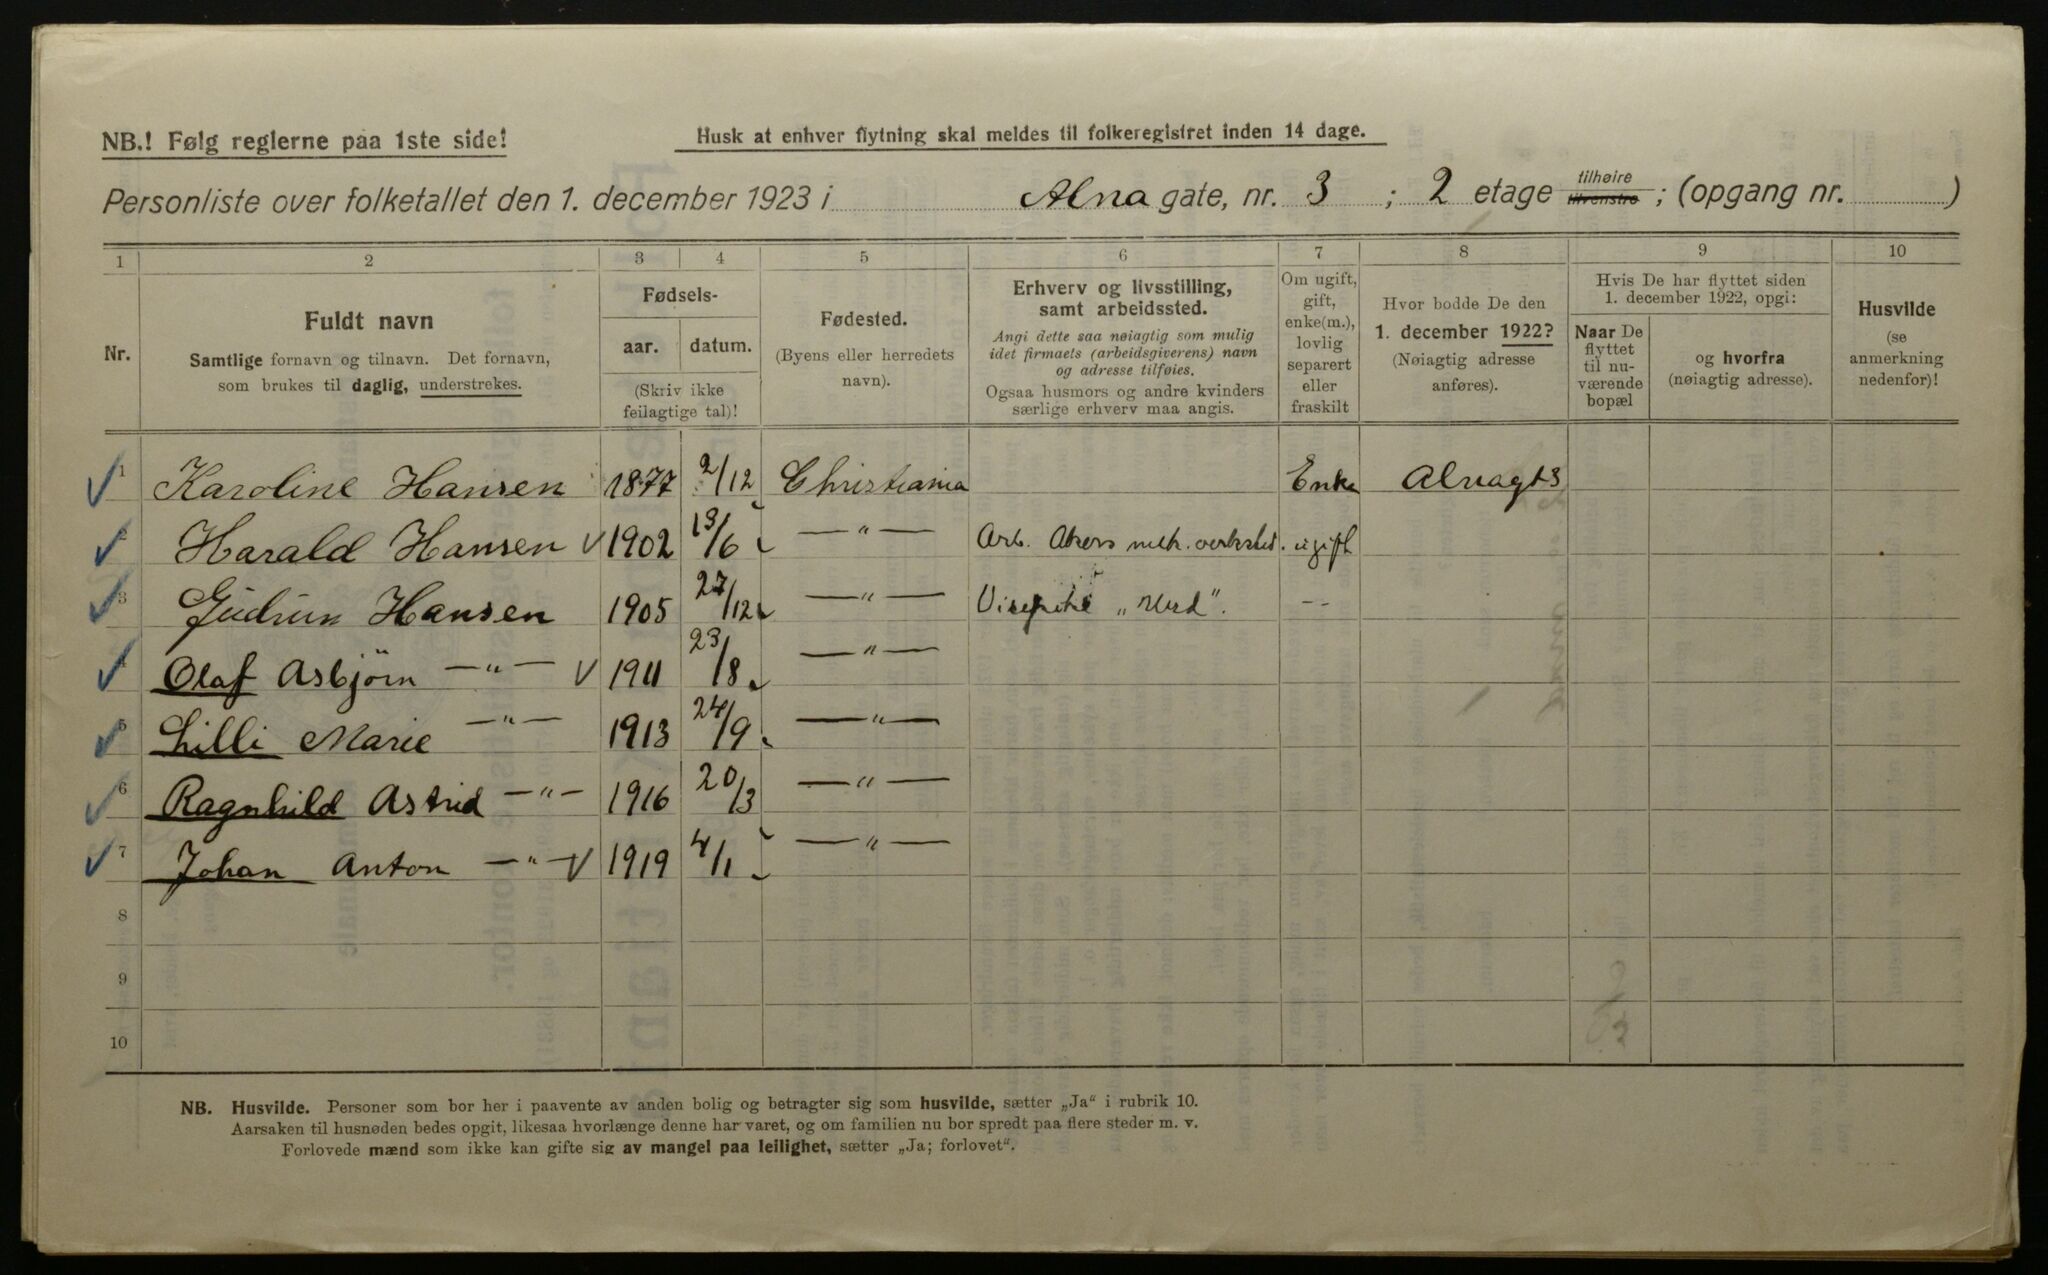 NB.! Følg reglerne paa 1ste side!
Husk at enhver flytning skal meldes til folkeregistret inden 14 dage.
Personliste over folketallet den 1. december 1923 i Alna gate, nr. 3 ; 2 etage tilhøire tilvenstre ; (opgang nr. )
1 2 3 4 5 6 7 8 9 10
Nr.
Fuldt navn
Samtlige fornavn og tilnavn. Det fornavn,
som brukes til daglig, understrekes.
Fødsels-
aar. datum.
(Skriv ikke
feilagtige tal)!
Fødested.
(Byens eller herredets
navn).
Erhverv og livsstilling,
samt arbeidssted.
Angi dette saa nøiagtig som mulig
idet firmaets (arbeidsgiverens) navn
og adresse tilføies.
Ogsaa husmors og andre kvinders
særlige erhverv maa angis.
Om ugift,
gift,
enke(m.),
lovlig
separert
eller
fraskilt
Hvor bodde De den
1. december 1922?
(Nøiagtig adresse
anføres).
Hvis De har flyttet siden
1. december 1922, opgi:
Naar De
flyttet
til nu-
værende
bopæl
og hvorfra
(nøiagtig adresse).
Husvilde
(se
anmerkning
nedenfor)!
1 Karoline Hansen 1877 2/12 Christiania Enke Alnagt 3
2 Harald Hansen 1902 13/6 —„— Arb. Akers mek. verksted. ugift
3 Gudrun Hansen 1905 27/12 —„— „Urd". --
4 Olaf Asbjörn —„— 1911 23/8 —„—
5 Lilli Marie —„— 1913 24/9 —„—
6 Ragnhild Astrid —„— 1916 20/3 —„—
7 Johan Anton —„— 1919 4/1 —„—
8
9
10
NB. Husvilde. Personer som bor her i paavente av anden bolig og betragter sig som husvilde, sætter „Ja“ i rubrik 10.
Aarsaken til husnøden bedes opgit, likesaa hvorlænge denne har varet, og om familien nu bor spredt paa flere steder m. v.
Forlovede mænd som ikke kan gifte sig av mangel paa leilighet, sætter „Ja; forlovet“.